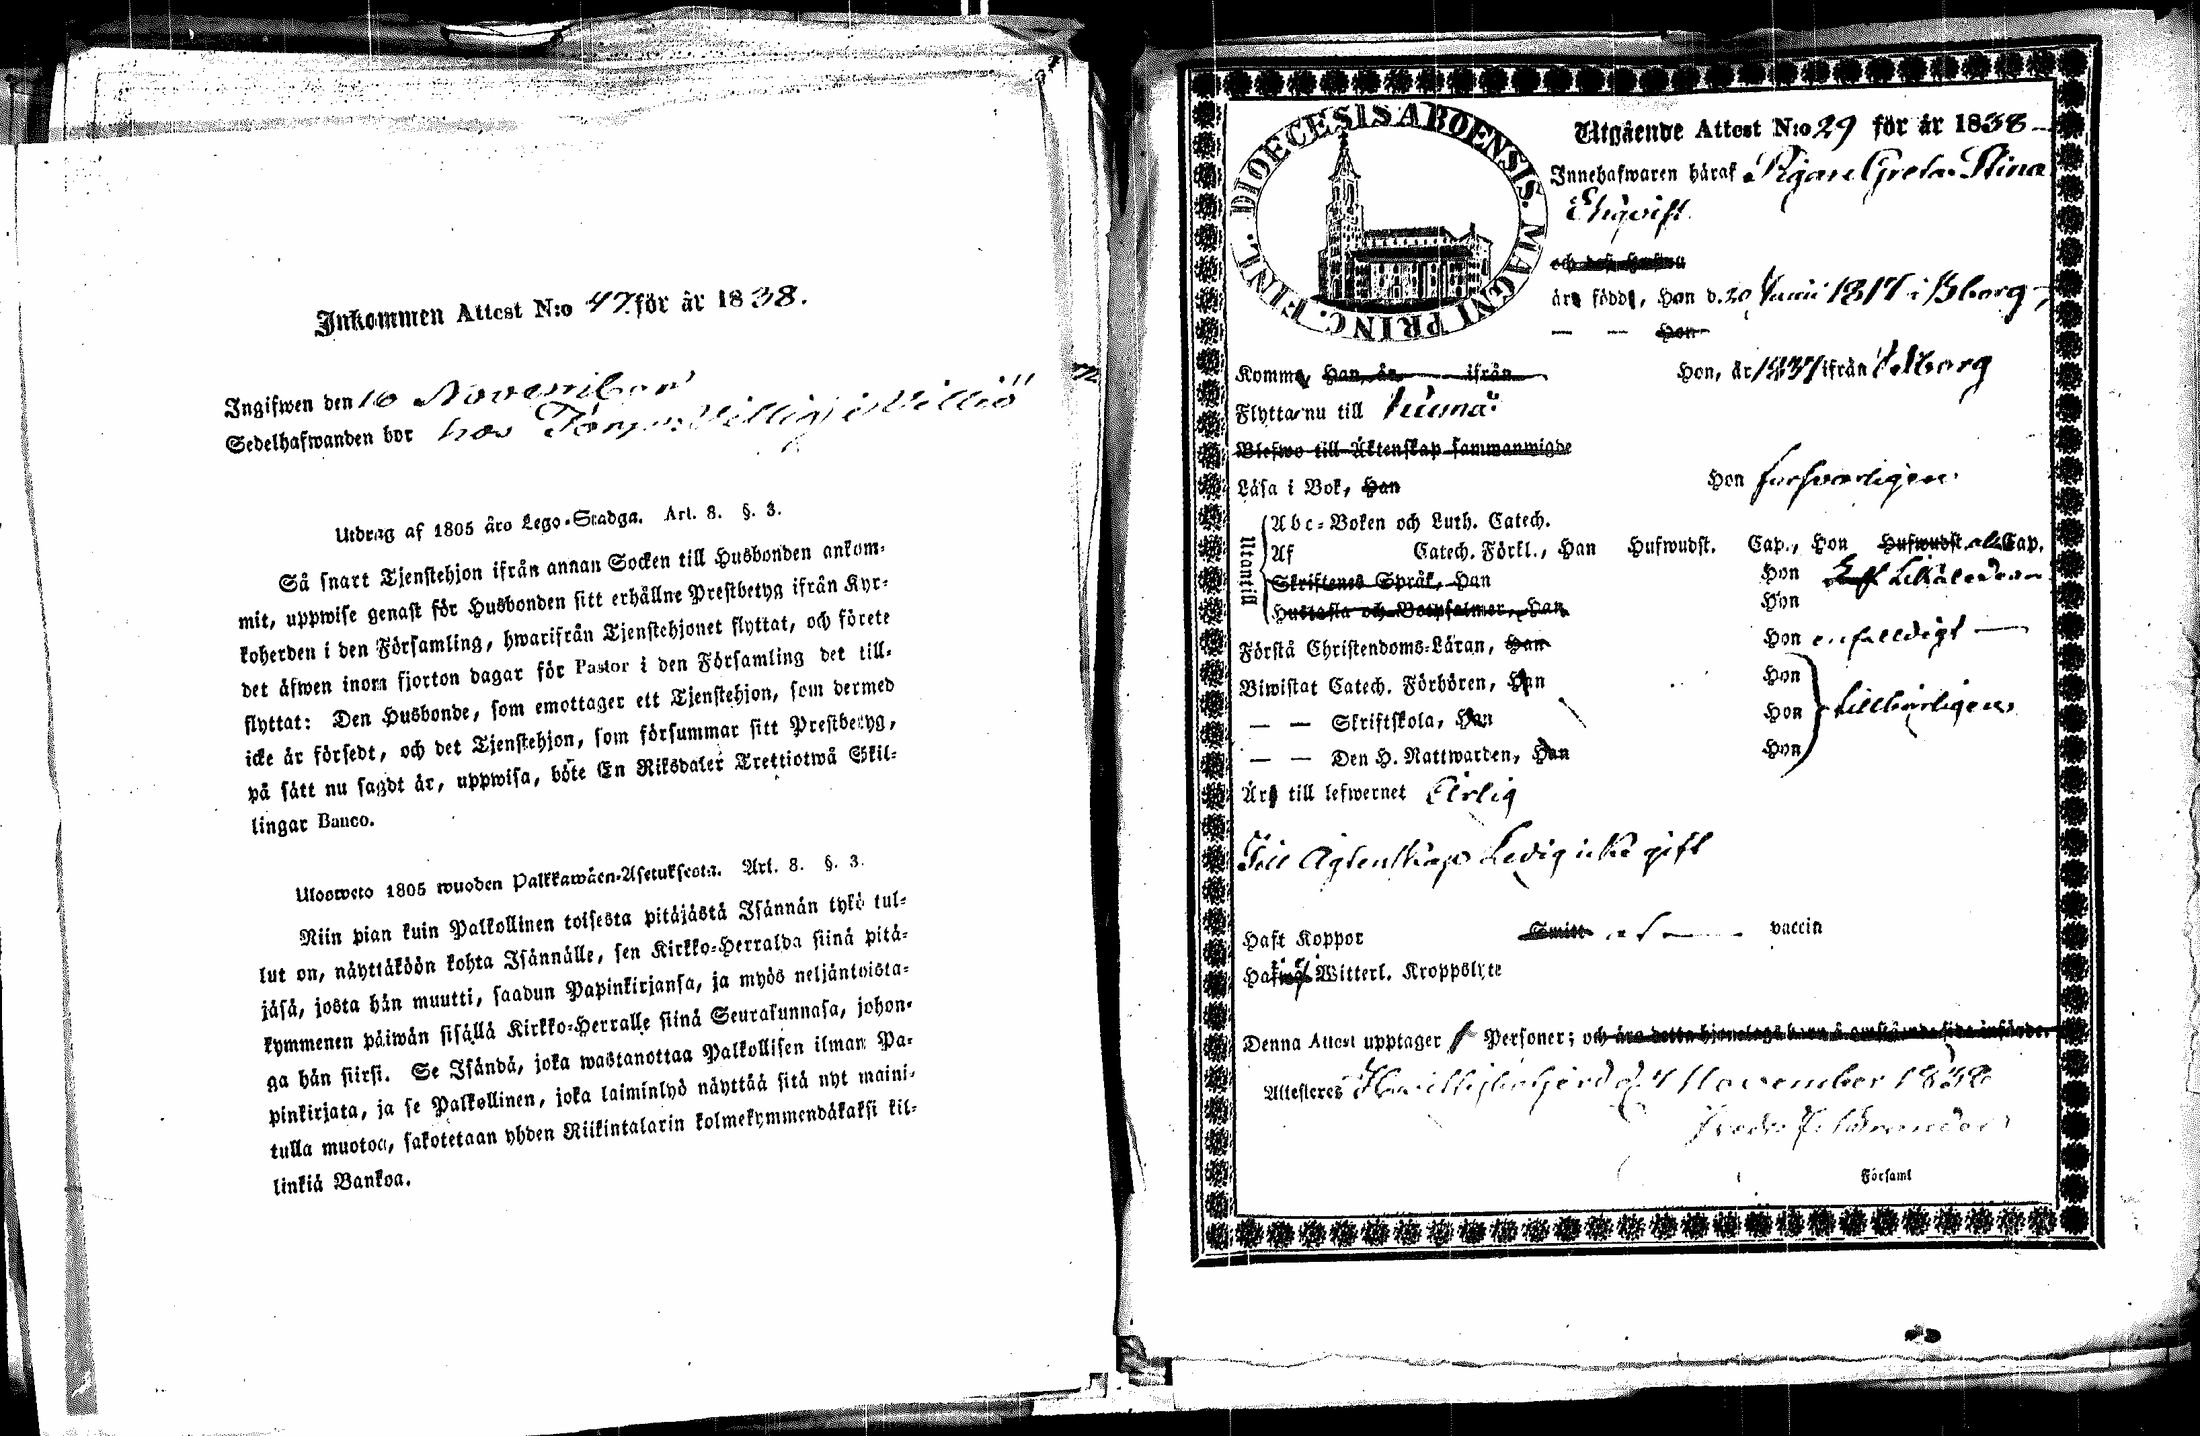 Inkommen Attest N:o 47. för år 1838.
Ingifwen den 16 November
Sedelhafwanden bor hos
Utdrag af 1805 års Lego-Stadga. Art. 8. §. 3.
Så snart Tjenstehjon ifrån annan Socken till Husbonden ankom-
mit, uppwise genast för Husbonden sitt erhållne Prestbetyg ifrån Kyr-
koherden i den Församling, hwarifrån Tjenstehjonet flyttat, och förete
det äfwen inom fjorton dagar för Pastor i den Församling det till-
flyttat: Den Husbonde, som emottager ett Tjenstehjon, som dermed
icke är försedt, och det Tjenstehjon, som försummar sitt Prestbetyg,
på sätt nu sagdt är, uppwisa, böte En Riksdaler Trettiotwå Skil-
lingar Banco.
Ulosweto 1805 wuoden Palkkawäen-Asetuksesta. Art. 8. §. 3.
Niin pian kuin Palkollinen toisesta pitäjästä Isännän tykö tul-
lut on, näyttäköön kohta Isännälle, sen Kirkko-Herralda siinä pitä-
jäsä, josta hän muutti, saadun Papinkirjansa, ja myös neljäntoista-
kymmenen päiwän sisällä Kirkko-Herralle siinä Seurakunnasa, johon-
ga hän siirsi. Se Isändä, joka wastanottaa Palkollisen ilman Pa-
pinkirjata, ja se Palkollinen, joka laiminlyö näyttää sitä nyt maini-
tulla muotoa, sakotetaan yhden Riikintalarin kolmekymmendäkaksi kil-
linkiä Bankoa.
DIOECESIS ABOENSIS. MAGNI PRINC. FINL.
Utgående Attest N:o 29 för år 1838
Innehafwaren häraf Pigan Greta Stina
och dess Hustru
äro födde, Hon d. 20 Junii 1817 i Bborg
— — Hon
Komme Han, år ifrån Hon, år 1837 ifrån
Flytta nu till
Blefwo till Äktenskap sammanwigde
Läsa i Bok, Han Hon försvarligen
Utantill
Abc-Boken och Luth. Catech.
Af Catech. Förkl., Han Hufwudst. Cap., Hon Hufwudst. alla Cap.
Skriftenes Språk, Han Hon
Hustafla och Botpsalmer, Han Hon
Förstå Christendoms-Läran, Han Hon enfalldigt
Biwistat Catech. Förhören, Han Hon
— — Skriftskola, Han Hon tillbörligen
— — Den H. Nattwarden, Han Hon
Äro till lefwernet Ärlig
Till Ägtenskap Ledig icke gift
Haft Koppor vaccin
Haf Witterl. Kroppslyte
Denna Attest upptager 1 Personer; och äro detta hjonelags barn å omstående sida införde.
Attesteres d. 4 November 1838
Församl